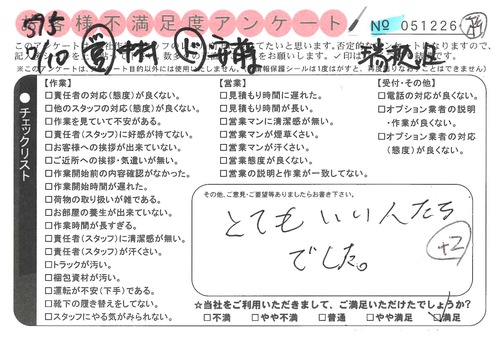 お客様不満足度アンケート
№ 051226
※このアンケートは、アンケート目的以外には使用いたしません。
チェックリスト
【作業】
□責任者の対応(態度)が良くない。
□他のスタッフの対応(態度)が良くない。
□作業を見ていて不安がある。
□責任者(スタッフ)に好感が持てない。
□お客様への挨拶が出来ていない。
□ご近所への挨拶・気遣いが無い。
□作業開始前の内容確認がなかった。
□作業開始時間が遅れた。
□荷物の取り扱いが雑である。
□お部屋の養生が出来ていない。
□作業時間が長すぎる。
□責任者(スタッフ)に清潔感が無い。
□責任者(スタッフ)が汗くさい。
□トラックが汚い。
□梱包資材が汚い。
□運転が不安(下手)である。
□靴下の履き替えをしてない。
□スタッフにやる気がみられない。
【営業】
□見積もり時間に遅れた。
□見積もり時間が長い。
□営業マンに清潔感が無い。
□営業マンが煙草くさい。
□営業マンが汗くさい。
□営業態度が良くない。
□営業の説明と作業が一致してない。
【受付・その他】
□電話の対応が良くない。
□オプション業者の説明
・作業が良くない。
□オプション業者の対応
(態度)が良くない。
その他、ご意見・ご要望等ありましたらお書き下さい。
とてもいい人たち
でした。
+2
☆当社をご利用いただきまして、ご満足いただけたでしょうか?
□不満 □やや不満 □普通 □やや満足 □満足